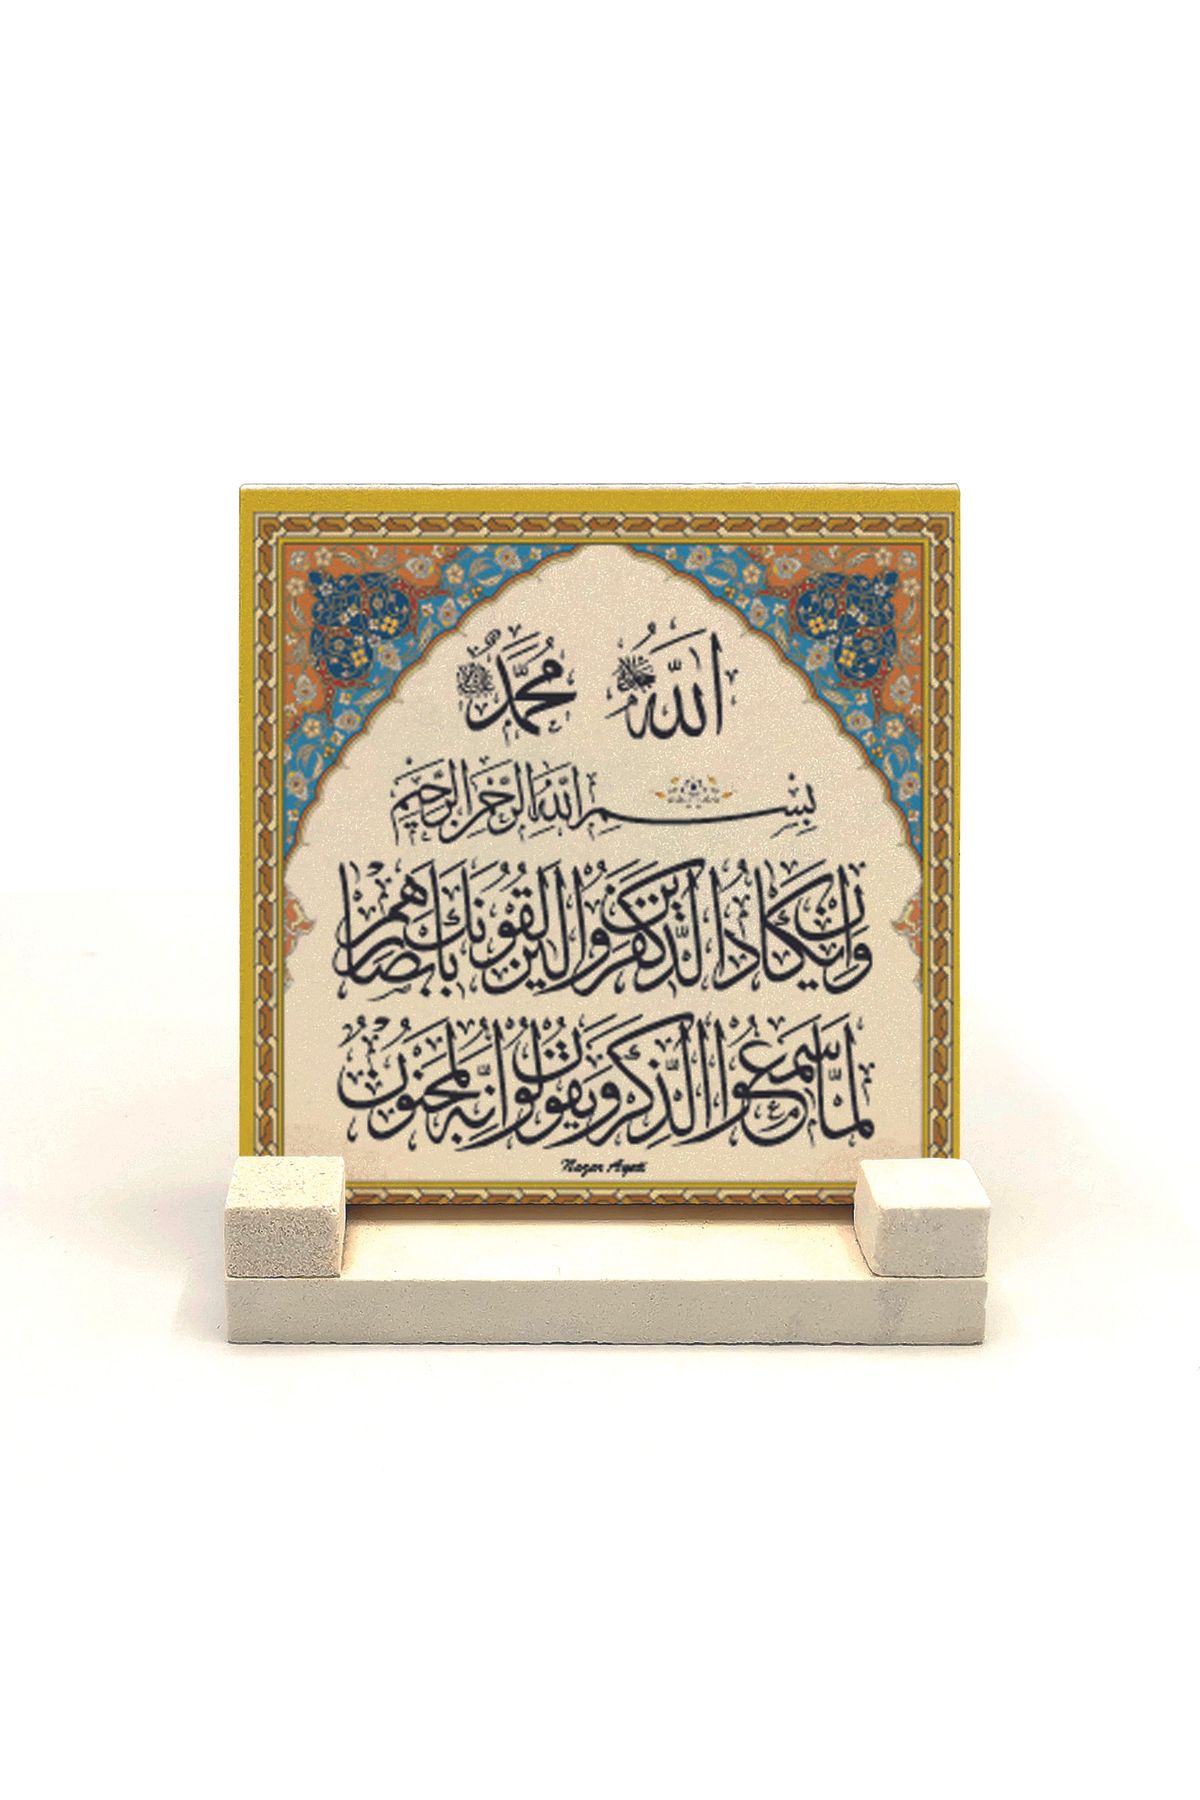 الله محمد
بِسْمِ اللَّهِ الرَّحْمَنِ الرَّحِيمِ
وَإِنْ يَكَادُ الَّذِينَ كَفَرُوا لَيُزْلِقُونَكَ بِأَبْصَارِهِمْ
لَمَّا سَمِعُوا الذِّكْرَ وَيَقُولُونَ إِنَّهُ لَمَجْنُونٌ
Nazar Ayeti